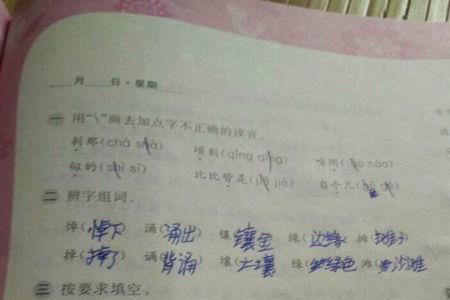 月 日·星期
一 用“\”画去加点字不正确的读音。
刹那(chà shà) 顷刻(qīng qǐng) 闹(nào)
似的(shì sì) 比比皆是(jiē jiè) 自个儿(gě gè)
二 辨字组词。
悼(悼下) 涌(涌出) 镶(镶金) 缘(边缘) 摊(摊子)
掉(掉了) 诵(背诵) 壤(土壤) 绿(绿色) 滩(沙滩
三 按要求填空。